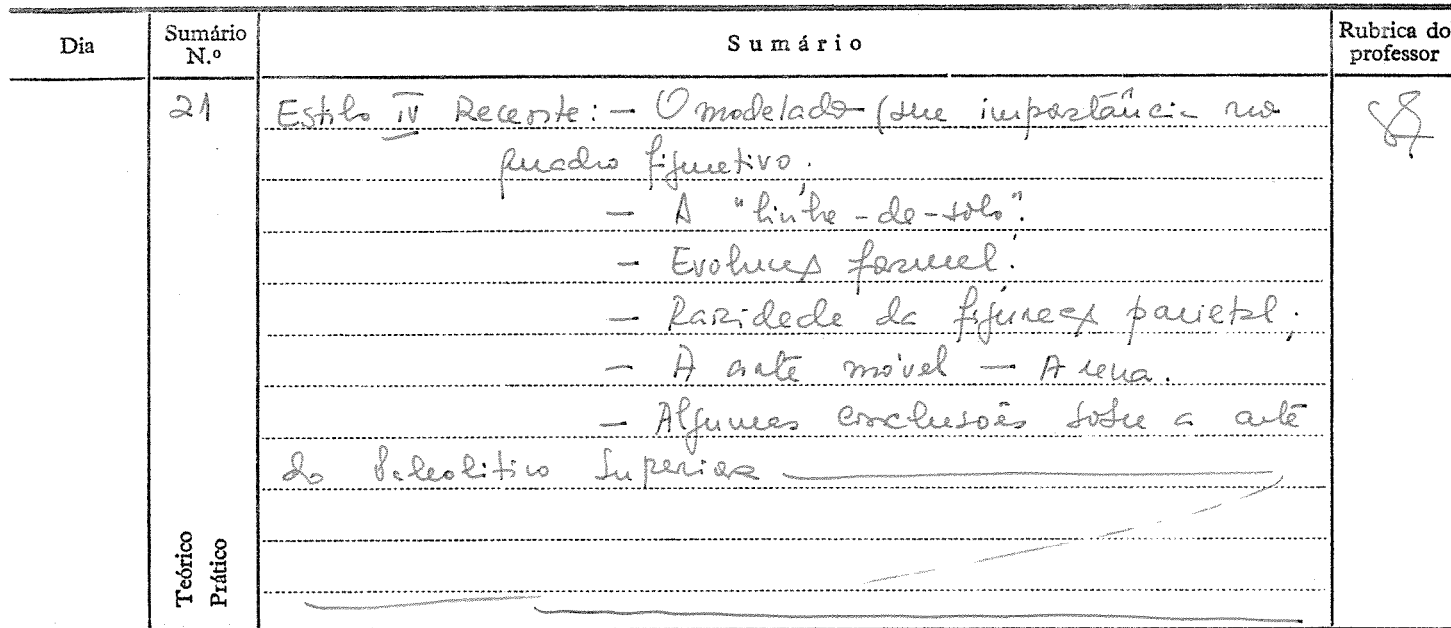 Dia
Sumário N.º
Sumário
Rubrica do professor
21
Estilo IV Recente: — O modelado (sua importância no
quadro figurativo.
— A "linha-de-solo".
— Evolução formal.
— Raridade da figuração parietal;
— A arte móvel — A rena.
— Algumas conclusões sobre a arte
do Paleolítico Superior
Teórico
Prático